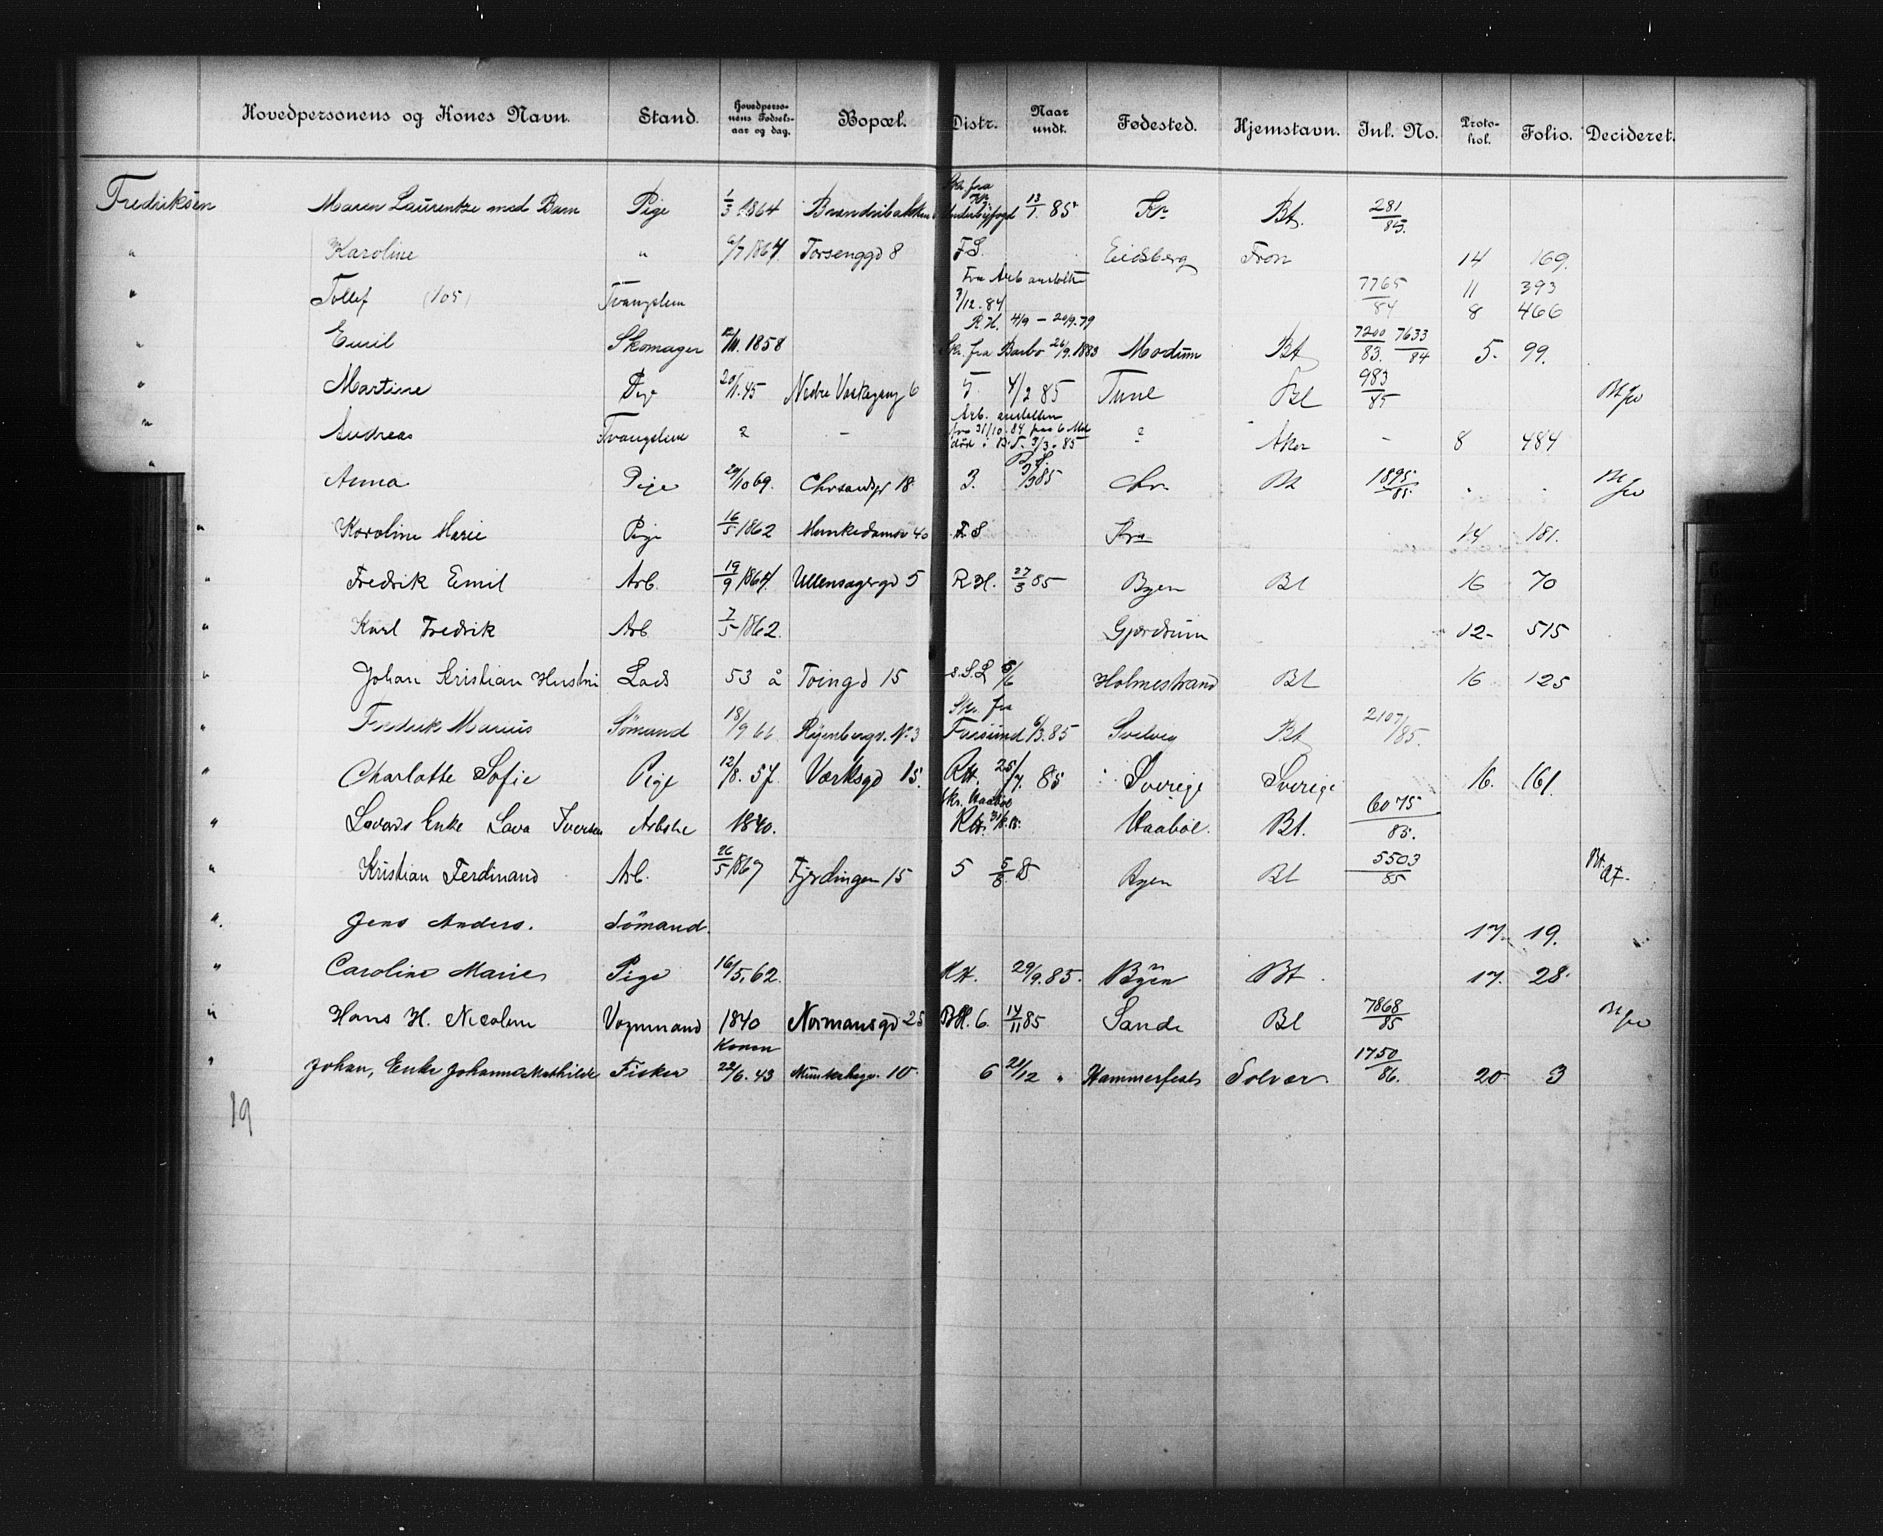 Hovedpersonens og Kones Navn. Stand. Hovedpersonens Fødselsaar og dag. Bopæl. Distr. Naar undt. Fødested. Hjemstavn. Inl. No. Protokol. Folio. Decideret.
Fredriksen Maren Laurentze med Barn Pige 1/3 1864 13/1. 85 Kr. Bt. 281/85.
" Karoline " 6/7 1864 Torsenggd 8 F.S. Eidsberg Tron 14 169.
" Tollef (105) Tvangslem Fra Arb anstalten 3/12.84 7765/84 11 393
8 466
" Emil Skomager 12/11. 1858 R.H. 4/9 - 20/9.79 Skr. fra Barbo 26/9.1883 Modum Bt 7200/83. 7633/84 5. 99.
" Martine Pige 20/11.45 Nedre Voldgang 6 5. 4/2 85 Tune Bt 983/85
" Andreas Tvangslem 2 - Arb. anstalten fra 31/10.84 paa 6 Md død i B.S. 3/3.85 ? Aker - 8 484
" Anna Pige 29/10 69. Chrsandsgd 18 3. 9/3 85 Chr. Bt 1895/85.
" Karoline Marie Pige 16/5 1862 Munkedamsv 40 F.S Kra 14 181.
" Fredrik Emil Arb. 19/9 1864. Ullensagergd 5 R.H. 27/3 85 Byen Bt 16 70
" Karl Fredrik Arb 7/5 1862. Gjerdrum 12- 515
" Johan Kristian Hustru Lods 53 å Toingd 15 s.S.L 5/6 Holmestrand Bt 16 125
" Fredrik Marius Sømand 18/9 66 Ryenbergv. No 3 Skr. fra Farsund 6/3.85 Svelvig Bt 2107/85.
" Charlotte Sofie Pige 12/8. 57 Værksgd 15. RH. 25/7. 85 Sverige Sverige 16. 161.
" Enke Lava Iversen Arbske 1840. Skr. Vaabøl RH. Vaaböl. Bt. 6075/85.
" Kristian Ferdinand Arb. 26/5 1867 Fjerdingen 15 5 5/8 85 Byen Bt 5503/85
" Jens Anders. Sömand. 17. 19.
" Caroline Marie Pige 16/5.62. RH. 29/9.85. Byen Bt 17. 28.
" Hans H. Nicoline Vognmand 1840 Normansgd 25 BH. 6. 14/11 85 Sande Bt 7868/85
" Johan, Enke Johanna Mathilde Fisker Konen 22/6. 43 10. 6 21/12 " Hammerfest Solvær 1750/86. 20 3
19